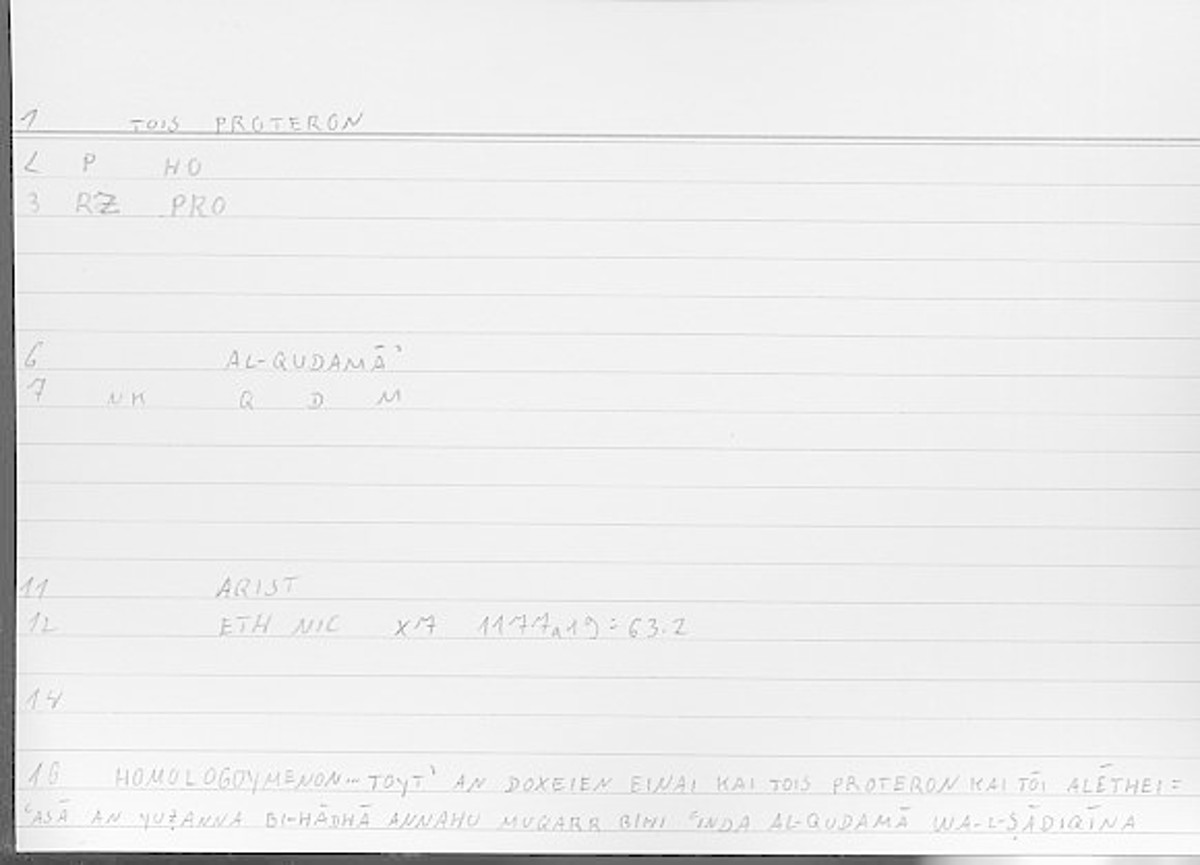 1 TOIS PROTERON
2 P HO
3 RZ PRO
6 AL-QUDAMĀʾ
7 NK Q D M
11 ARIST
12 ETH NIC X7 1177a19 = 63.2
14
16 HOMOLOGOYMENON... TOYT' AN DOXEIEN EINAI KAI TOIS PROTERON KAI TŌI ALĒTHEI =
ʿASĀ AN YUẒANNA BI-HĀDHĀ ANNAHU MUQARR BIHI ʿINDA AL-QUDAMĀ WA-L-ṢĀDIQĪNA